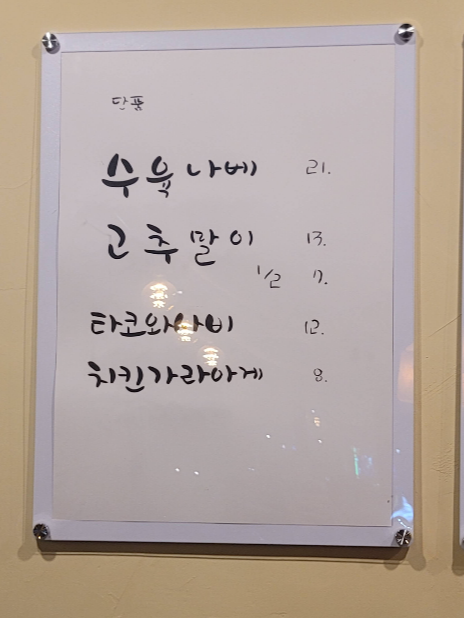 단품
수육나베 21.
고추말이 13.
1/2 7.
타코와사비 12.
치킨가라아게 8.